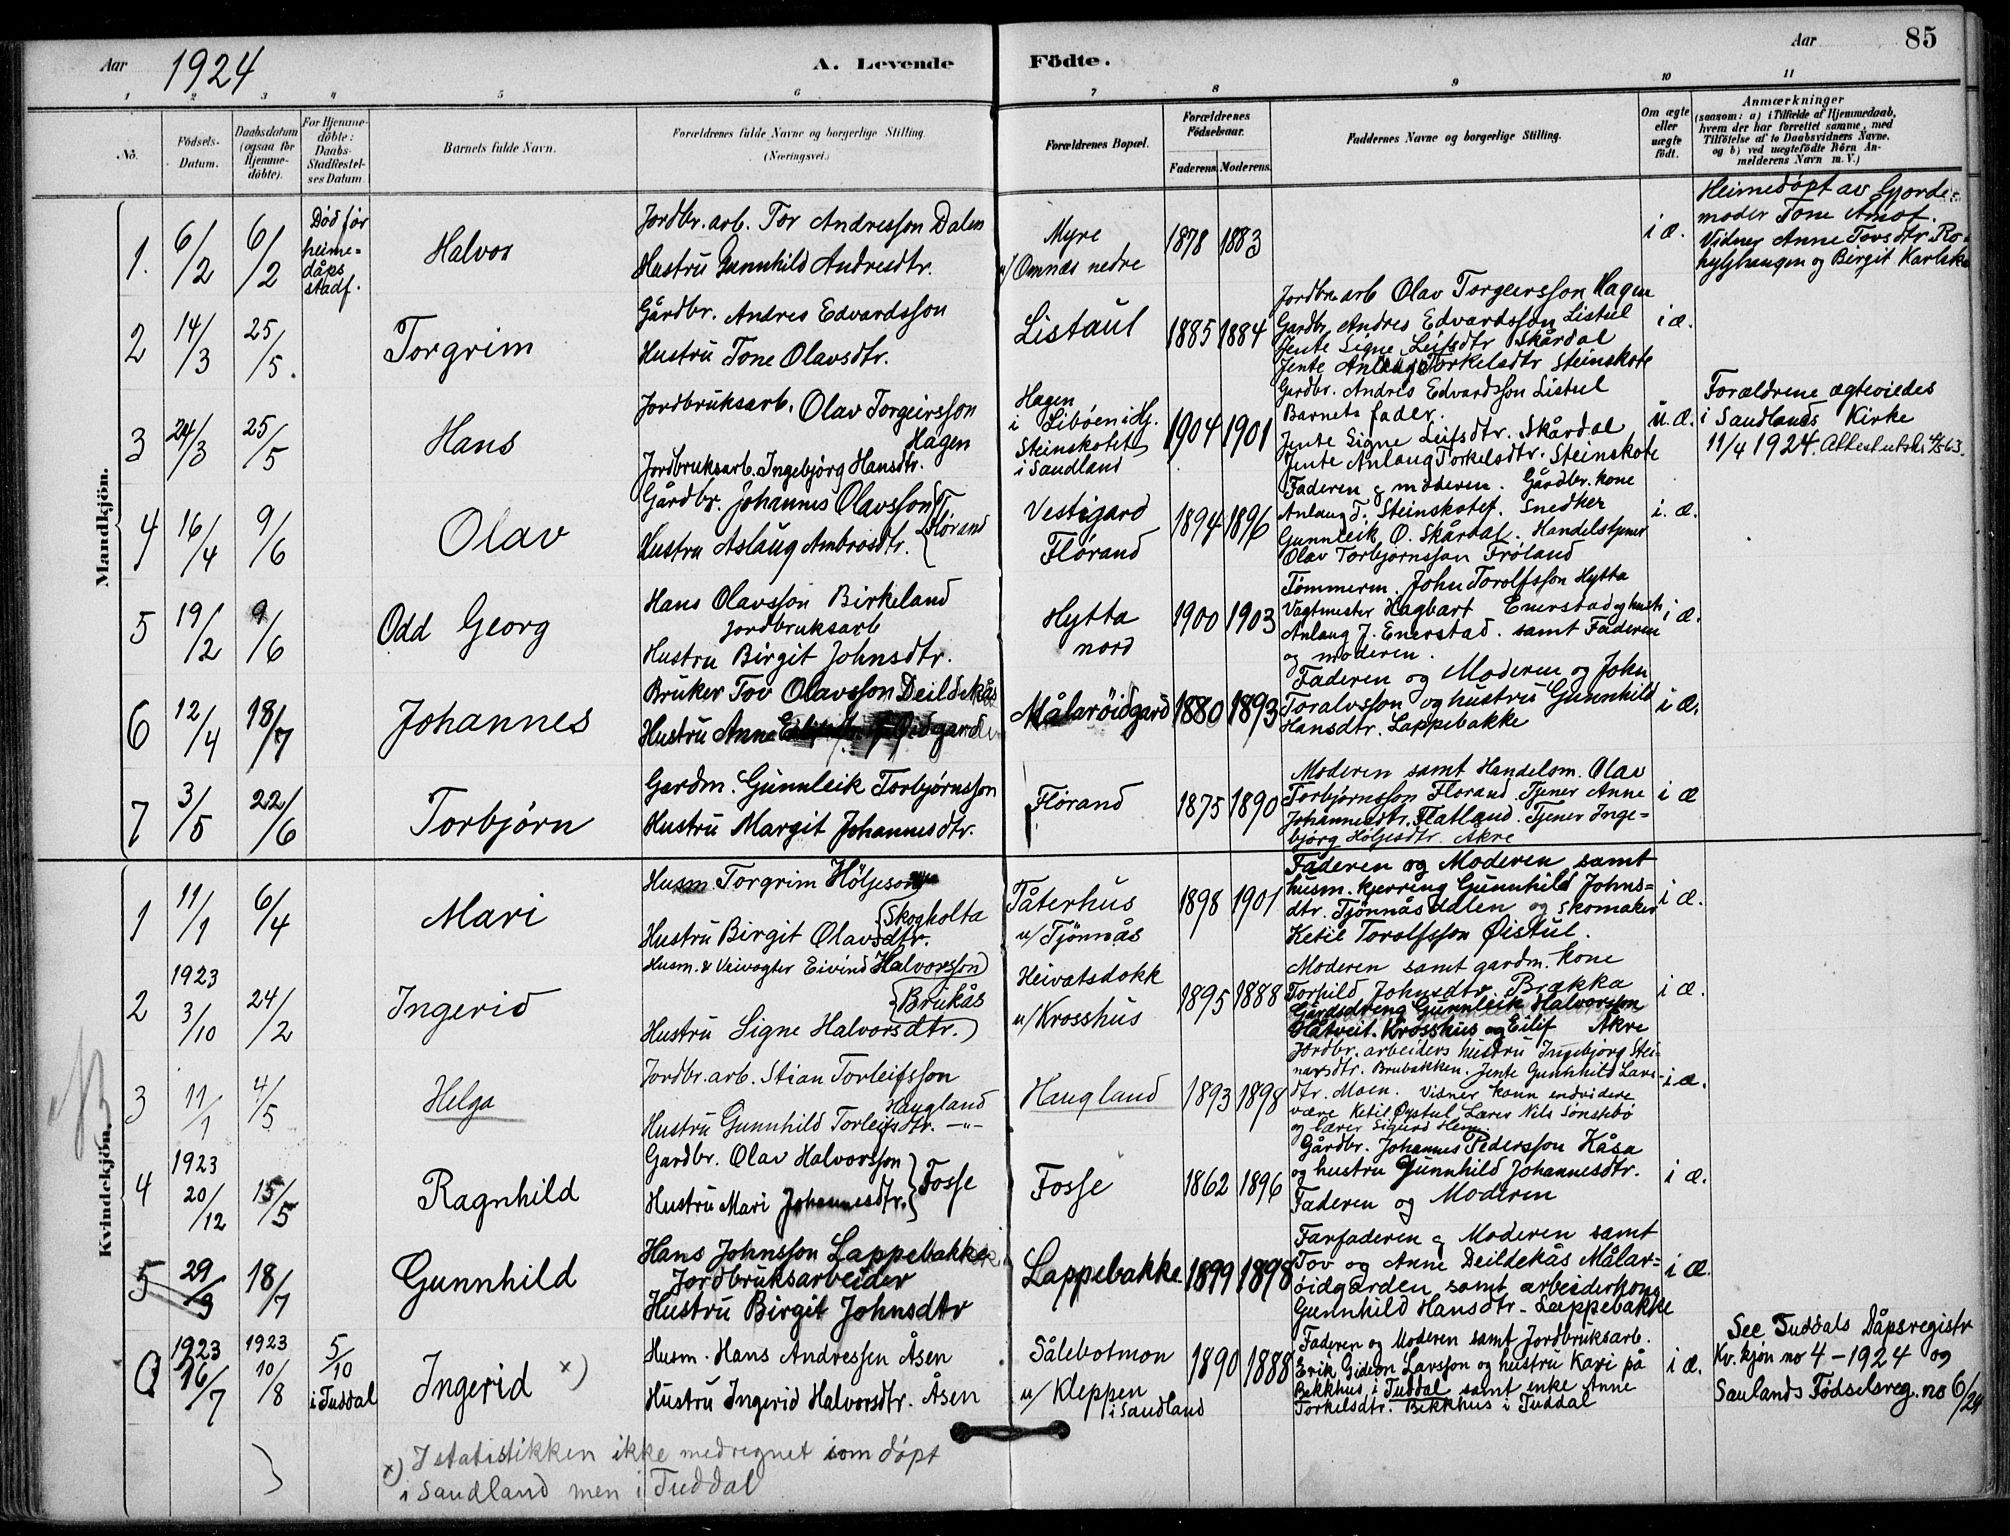 Aar 1924 A. Levende Födte. Aar 85
1 2 3 4 5 6 7 8 9 10 11
No. Födsels-Datum. Daabsdatum (ogsaa for Hjemme-döbte). For Hjemme-döbte: Daabs-Stadfæstel-ses Datum. Barnets fulde Navn. Forældrenes fulde Navne og borgerlige Stilling. (Næringsvei.) Forældrenes Bopæl. Forældrenes Födselsaar. Faderens. Moderens. Faddernes Navne og borgerlige Stilling. Om ægte eller uægte födt. Anmærkninger (saasom: a) i Tilfælde af Hjemmedaab, hvem der har forrettet samme, med Tilföielse af to Daabsvidners Navne. og b) ved uægtefödte Börn An-melderens Navn m. V.)
Mandkjön.
1. 6/2 6/2 Død før heime-dåps stadf. Halvor
Jordbr. arb. Tor Andresson Dalen
Hustru Gunnhild Andresdtr.
Myre
u/ Omnæs nedre
1878 1883 i æ.
Heimedøpt av Gjorde-
moder Tone Amot.
Vidner Anne Tovsdtr.
og Birgit
2 14/3 25/5. Torgrim
Gårdbr. Andres Edvardsson
Hustru Tone Olavsdtr.
Listaul 1885 1884
Jordbr. arb Olav Torgeirsson Hagen
Gardbr. Andres Edvardsson Listul
Jente Signe Leifsdtr Skårdal
Jente Anlaug Torkelsdtr Steinskote
i æ.
3 24/3 25/5 Hans
Jordbruksarb. Olav Torgeirsson
Hagen
Jordbruksarb. Ingebjørg Hansdtr.
Hagen
i Libøen i Hj.
Steinskotet
i Sandland
1904 1901
Gardbr. Andres Edvardsson Listul
Barnets fader.
Jente Signe Leifsdtr. Skårdal
Jente Anlaug Torkelsdtr. Steinskote
u. æ.
Forældrene ægteviedes
i Saudlands Kirke
11/4 1924.
4 16/4 9/6 Olav
Gårdbr. Johannes Olavsson
Hustru Aslaug Ambrosdtr. Flørand
Vestigard
Flørand
1894 1896
Faderen og moderen. Gårdbr. kone
Anlaug T. Steinskotet. Snedker
Gunnleik O. Skårdal. Handelstjener
Olav Torbjørnsson Frøland
i. æ.
5 19/2 9/6 Odd Georg
Hans Olavsson Birkeland
Jordbruksarb
Hustru Birgit Johnsdtr.
Hytta
nord
1900 1903
Tømmerm. John Torolfsson Hytta
Vagtmester Hagbart Enerstad og hustr
Anlaug J. Enerstad. samt Faderen
og moderen.
i æ.
6 12/4 18/7 Johannes
Bruker Tov Olavsson Deildekås
Hustru Anne
Målarøidgard 1880 1893
Faderen og Moderen og John
Toralvsson og hustru Gunnhild
Hansdtr. Lappebakke
i æ.
7 3/5 22/6 Torbjørn
Gardm. Gunnleik Torbjørnsson
Hustru Margit Johannesdtr.
Flørand 1875 1890
Moderen samt Handelsm. Olav
Torbjørnsson Florand. Tjener Anne
Johannesdtr. Flatland. Tjener Inge-
bjørg Høljesdtr. Åkre
i æ
Kvindekjön.
1 11/1 6/4 Mari
Husm. Torgrim Høljeson
Skogholta
Hustru Birgit Olavsdtr.
Tåterhus
u/ Tjønnås
1898 1901
Faderen og Moderen samt
husm. kjerring Gunnhild Johns-
dtr. Tjønnåsdalen og skomaker
Ketil Torolfsson Øistul.
i æ.
2 1923 3/10 24/2 Ingerid
Husm. & Veivogter Eivind Halvorsson
Brukås
Hustru Signe Halvorsdtr.
Heivatsdokk
u/ Krosshus
1895 1888
Moderen samt gardm. kone
Torhild Johnsdtr Brækka
Gårdsdreng Gunnleik Halvorsson
Håtveit. Krosshus og Eilif Åkre
i æ.
3 11/1 4/5 Helga
Jordbr. arb. Stian Torleifsson
Haugland
Hustru Gunnhild Torleifsdtr. -"-
Haugland 1893 1898
Jordbr. arbeiders hustru Ingebjørg Stei-
narsdtr. Brubakken. Jente Gunnhild Lars-
dtr. Moen. Vidner kann endvidere
være Ketil Øystul Lærer Nils Sønstebø
og lærer Sigurd Heim.
i æ.
4 1923 20/12 15/5 Ragnhild
Gardbr. Olav Halvorsson
Hustru Mari Johannesdtr. Fosse
Fosse 1862 1896
Gårdbr. Johannes Pedersson Kåsa
og hustru Gunnhild Johannesdtr.
Faderen og Moderen
i æ.
5 29/3 18/7 Gunnhild
Hans Johnsson Lappebakke
Jordbruksarbeider
Hustru Birgit Johnsdtr
Lappebakke 1899 1898
Farfaderen og Moderen samt
Tov og Anne Deildekås Målar-
øidgarden samt arbeiderkone
Gunnhild Hansdtr. Lappebakke
i æ.
0 1923 16/7 1923 10/8 5/10 i Tuddal Ingerid x)
Husm. Hans Andressen Åsen
Hustru Ingerid Halvorsdtr. Åsen
Sålebotmon
u/ Kleppen
i Sandland
1890 1888
Faderen og Moderen samt Jordbruksarb.
Erik Gideon Larsson og hustru Kari på
Bekkhus i Tuddal samt enke Anne
Torkelsdtr. Bekkhus i Tuddal
i æ.
See Tuddals Dåpsregistr
Kv. kjøn no 4 - 1924 og
Saulands Fødselsreg. no 6/24
x) I statistikken ikke medregnet som døpt
i Saudland men i Tuddal